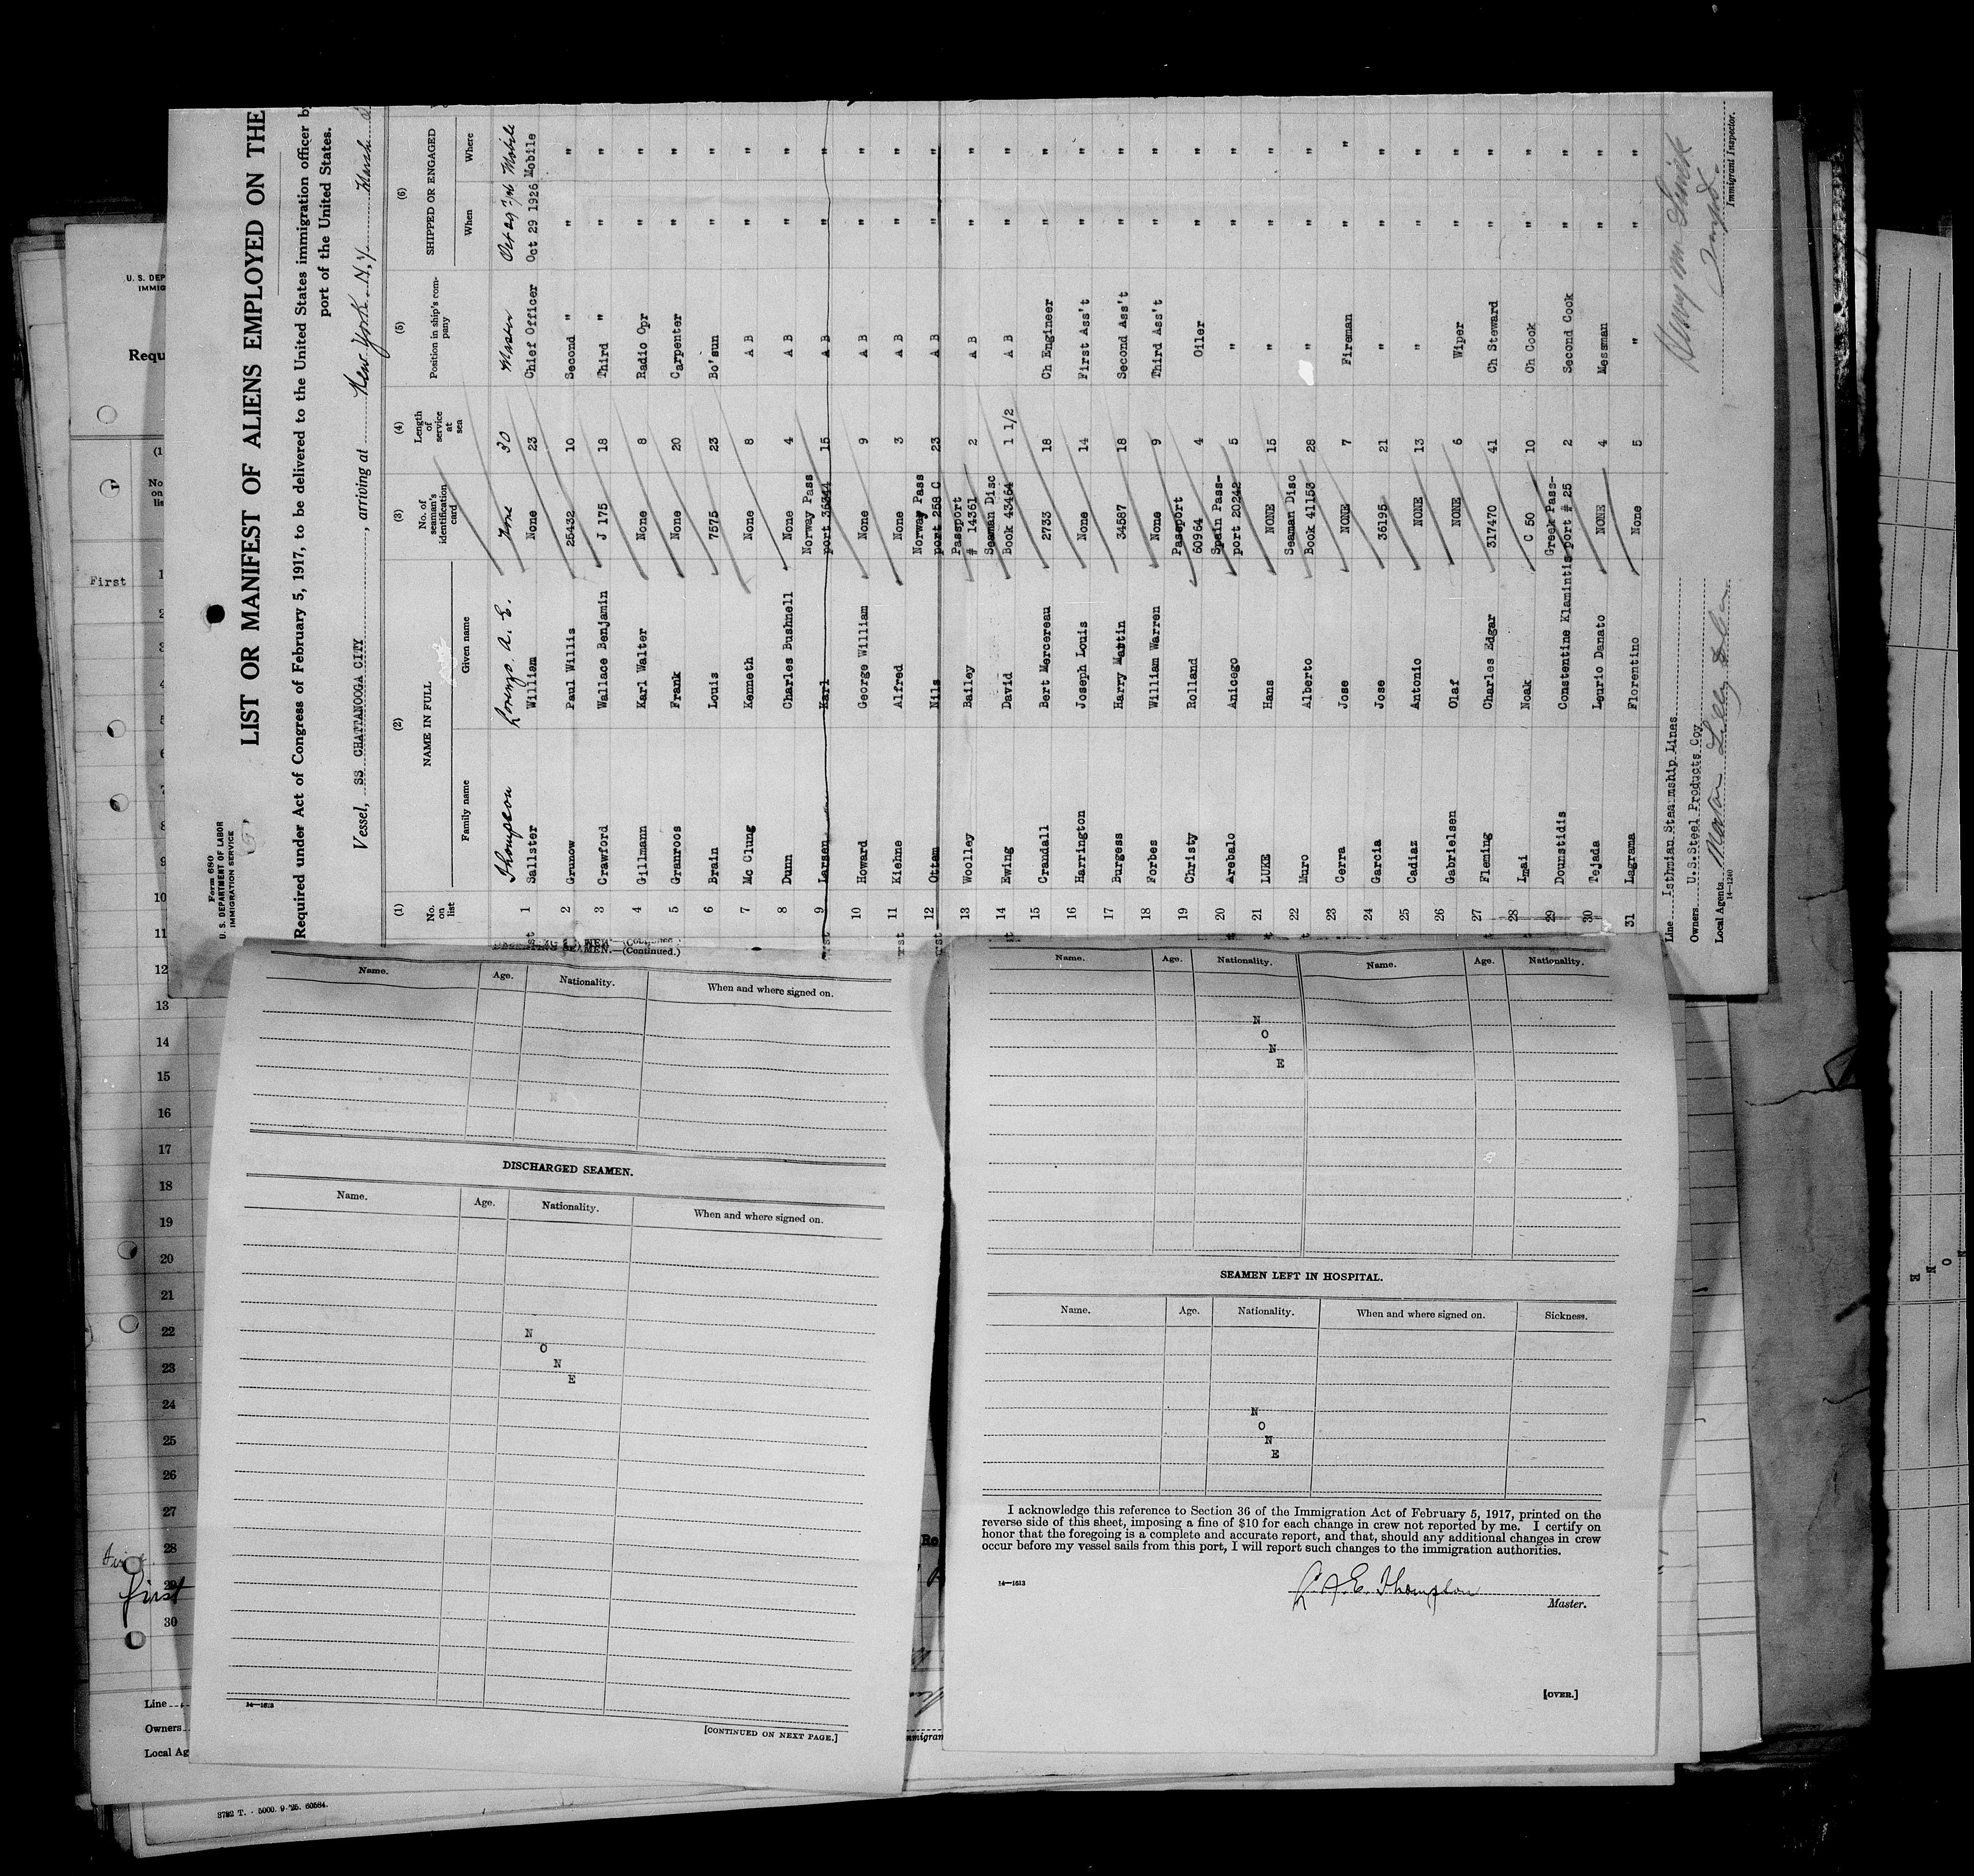 Form 680
U. S. DEPARTMENT OF LABOR
IMMIGRATION SERVICE
LIST OR MANIFEST OF ALIENS EMPLOYED ON THE
Required under Act of Congress of February 5, 1917, to be delivered to the United States immigration officer by
port of the United States.
Vessel, SS CHATTANOOGA CITY, arriving at New York N.Y. March
(1) (2) (3) (4) (5) (6)
No. on list NAME IN FULL No. of seaman's identification card Length of service at sea Position in ship's company SHIPPED OR ENGAGED
Family name Given name When Where
Thompson Lorenzo A. E. None 30 Master Oct 29 Mobile
1 Sallster William None 23 Chief Officer Oct 29 1926 Mobile
2 Grunow Paul Willis 25432 10 Second " " "
3 Crawford Wallace Benjamin J 175 18 Third " " "
4 Gillmann Karl Walter None 8 Radio Opr " "
5 Granroos Frank None 20 Carpenter " "
6 Brain Louis 7575 23 Bo'sun " "
7 Mc Clung Kenneth None 8 A B " "
8 Dunn Charles Bushnell None 4 A B " "
9 Larsen Karl Norway Pass port 36344 15 A B " "
10 Howard George William None 9 A B " "
11 Kiehne Alfred None 3 A B " "
12 Ottem Nils Norway Pass port 258 C 23 A B " "
13 Woolley Bailey Passport # 14361 2 A B " "
14 Ewing David Seaman Disc Book 43464 1 1/2 A B " "
15 Crandall Bert Mercereau 2733 18 Ch Engineer " "
16 Harrington Joseph Louis None 14 First Ass't " "
17 Burgess Harry Martin 34587 18 Second Ass't " "
18 Forbes William Warren None 9 Third Ass't " "
19 Christy Rolland Passport 60964 4 Oiler " "
20 Arebalo Anicego Spain Pass- port 20242 5 " " "
21 LUKE Hans NONE 15 " " "
22 Muro Alberto Seaman Disc Book 41153 28 " " "
23 Cerra Jose NONE 7 Fireman " "
24 Garcia Jose 36195 21 " " "
25 Cadiaz Antonio NONE 13 " " "
26 Gabrielsen Olaf NONE 6 Wiper " "
27 Fleming Charles Edgar 317470 41 Ch Steward " "
28 Lmai Noak C 50 10 Ch Cook " "
29 Dounstidis Constentine Klamintis Greek Pass- port # 25 2 Second Cook " "
30 Tejada Leurio Danato NONE 4 Messman " "
31 Lagrama Florentino None 5 " " "
Line Isthmian Staamship Lines
Owners U.S.Steel Products Coy
Local Agents
14—1240
Immigrant Inspector.
U. S. DEP
IMMIG
Requ
(1
No
on
lis
First
1
2
3
4
5
6
7
8
9
10
11
12
13
14
15
16
17
18
19
20
21
22
23
24
25
26
27
28
29
First
30
Line
Owners
Local Ag
3782 T. - 5000. 9-'25. 60584.
SEAMEN.—(Continued.)
Name. Age. Nationality. When and where signed on.
DISCHARGED SEAMEN.
Name. Age. Nationality. When and where signed on.
N
O
N
E
14—1613
[CONTINUED ON NEXT PAGE.]
Name. Age. Nationality. Name. Age. Nationality.
N
O
N
E
SEAMEN LEFT IN HOSPITAL.
Name. Age. Nationality. When and where signed on. Sickness.
N
O
N
E
I acknowledge this reference to Section 36 of the Immigration Act of February 5, 1917, printed on the
reverse side of this sheet, imposing a fine of $10 for each change in crew not reported by me. I certify on
honor that the foregoing is a complete and accurate report, and that, should any additional changes in crew
occur before my vessel sails from this port, I will report such changes to the immigration authorities.
14—1613
L A E. Thompson
Master.
[OVER.]
mmigran
O
N
E